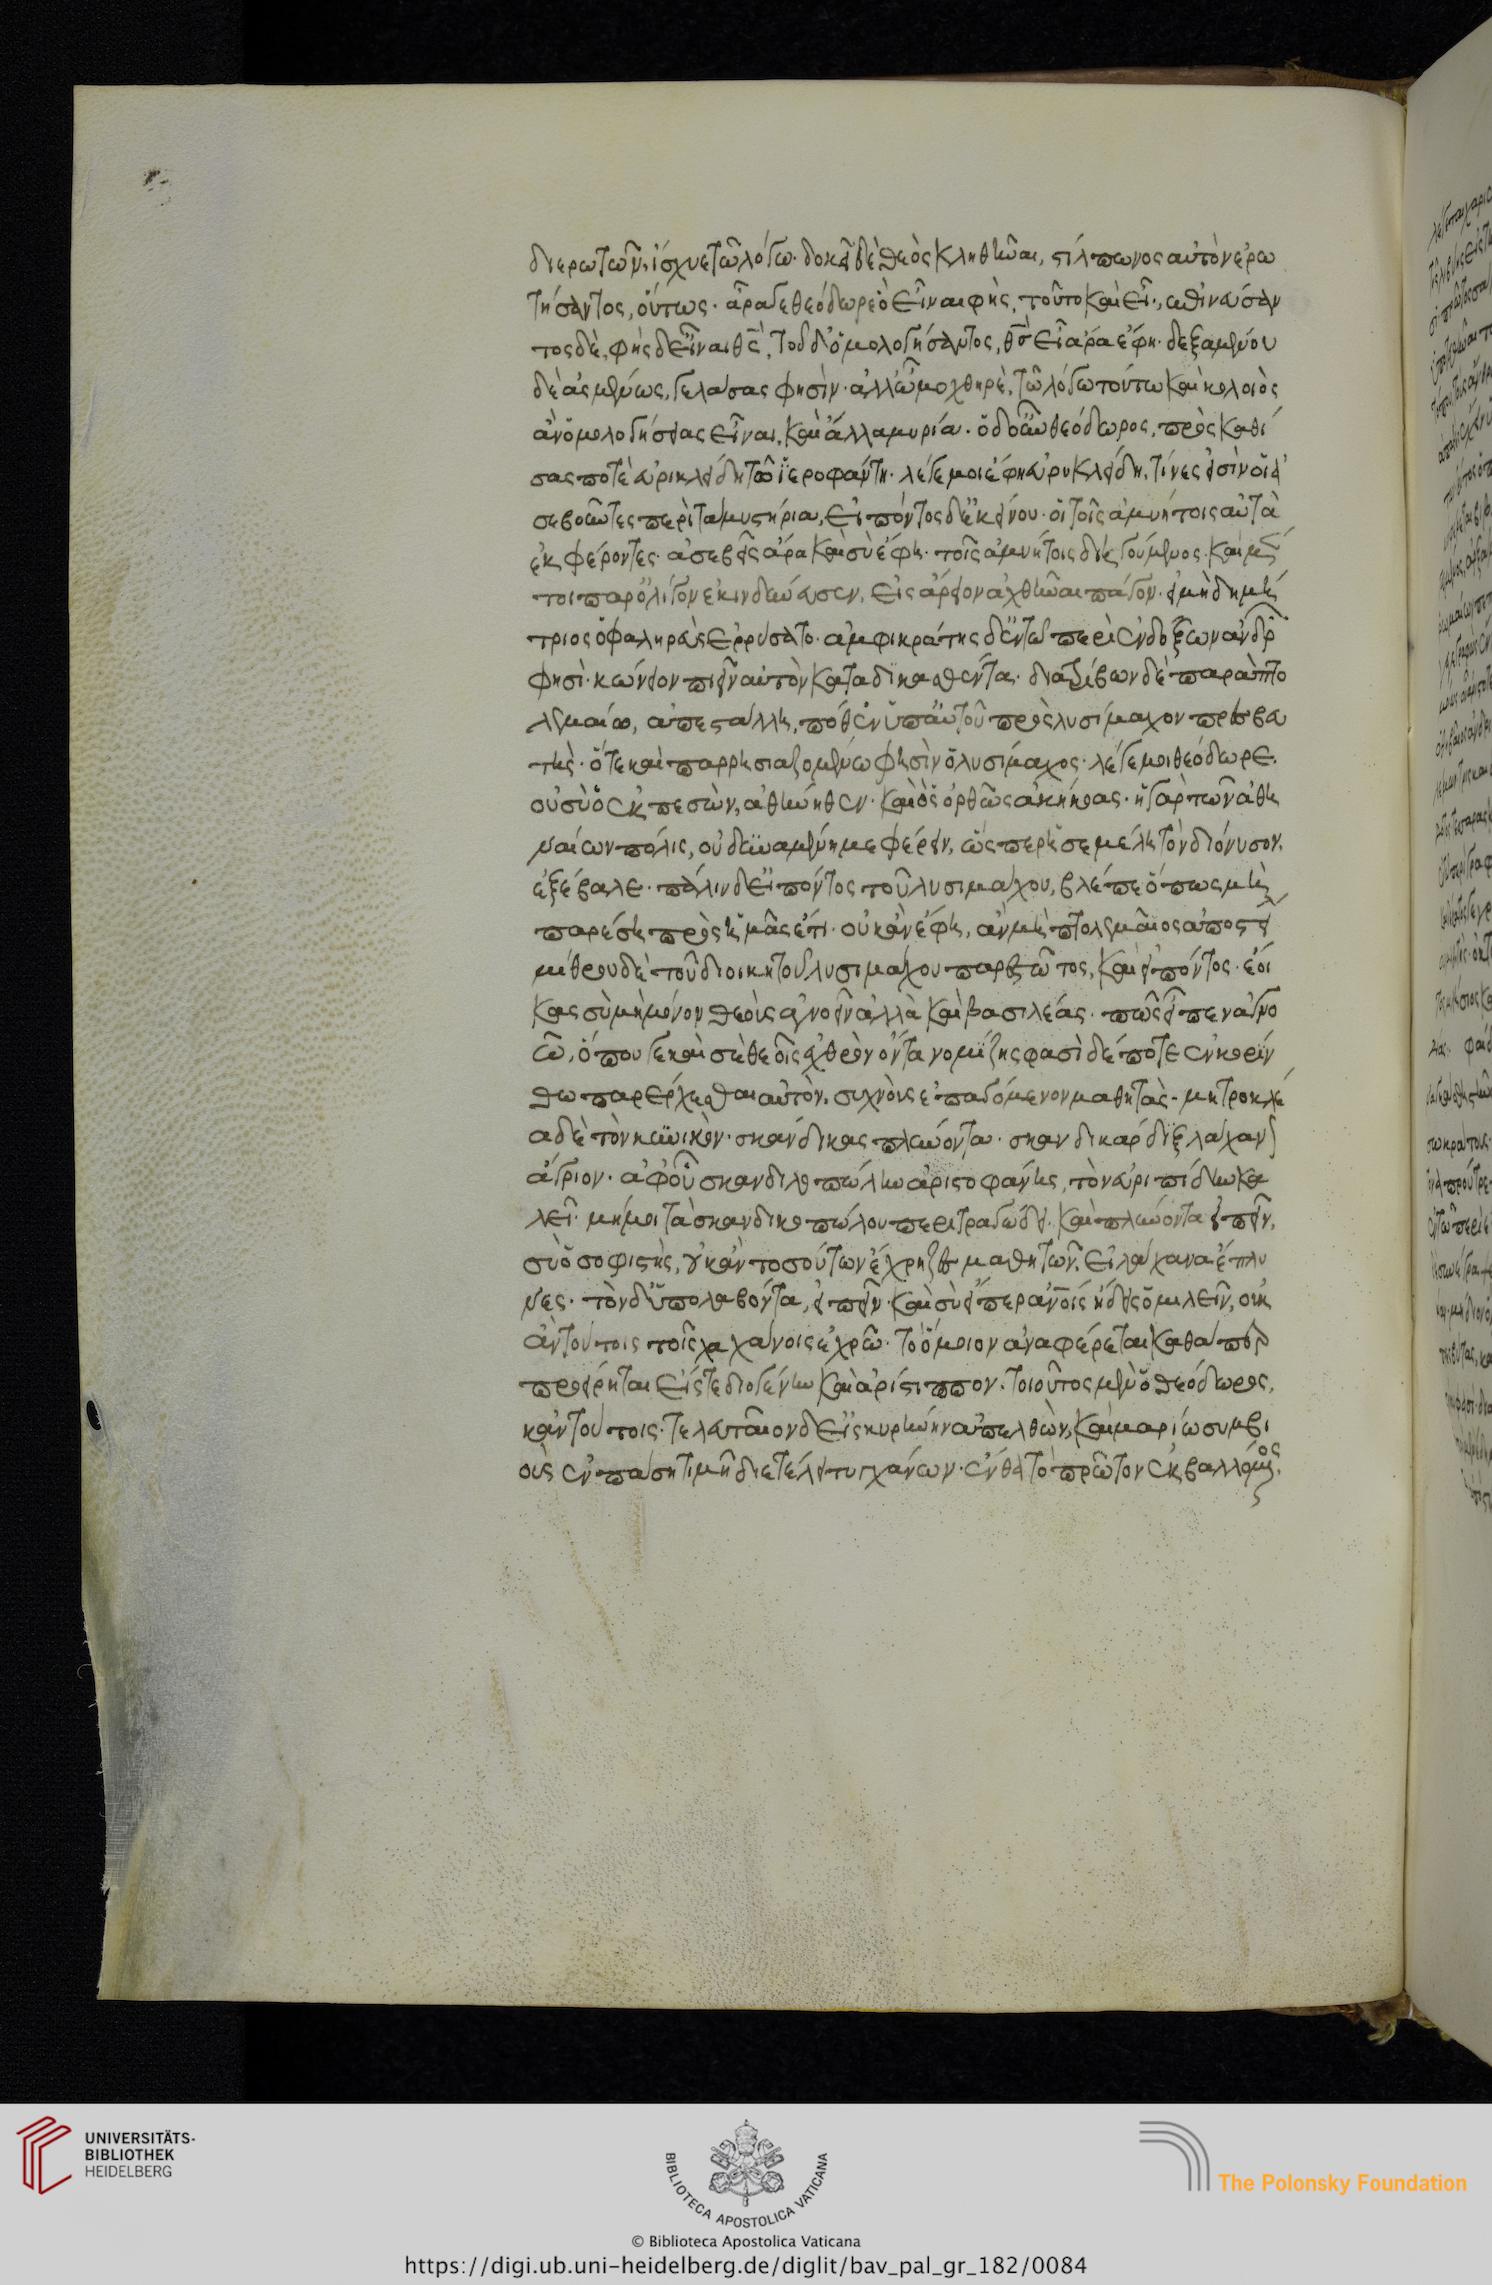 διερωτῶν, ἴσχυε τῶ λόγω. δοκεῖ δὲ θεὸς κληθῆναι, στίλπωνος αὐτὸν ἐρω
τήσαντος, οὕτως. ἆρά γε θεόδωρε ὃ εἶναι φὴς, τοῦτο καὶ εἶ., ἐπινεύσαν
τος δὲ, φὴς δ' εἶναι θεὸν, τοῦ δ' ὁμολογήσαντος, θεὸς εἶ ἄρα ἔφη. δεξαμένου
δὲ ἀσμένως, γελάσας φησὶν. ἀλλ' ὦ μοχθηρὲ, τῶ λόγω τούτω καὶ κολοιὸς
ἂν ὁμολογήσειας εἶναι, καὶ ἄλλα μυρία. ὁ δ' οὖν θεόδωρος, προσκαθί
σας ποτὲ εὐρικλείδη τῶ ἱεροφάντη. λέγε μοι ἔφη εὐρυκλείδη, τίνες εἰσὶν οἱ ἀ
σεβοῦντες περὶ τὰ μυστήρια, εἰπόντος δ' ἐκείνου. οἱ τοῖς ἀμυήτοις αὐτὰ
ἐκφέροντες. ἀσεβεῖς ἄρα καὶ σὺ ἔφη. τοῖς ἀμυήτοις διηγούμενος. καὶ μέν
τοι παρ' ὀλίγον ἐκινδύνευσεν, εἰς ἄρειον ἀχθῆναι πάγον. εἰ μὴ δημή
τριος ὁ φαληρεὺς ἐρρύσατο. ἀμφικράτης δ' ἐν τῶ περὶ ἐνδόξων ἀνδρῶν
φησὶ. κώνειον πιεῖν αὐτὸν καταδικασθέντα. διατρίβων δὲ παρὰ πτο
λεμαίω, ἀπεστάλη, ποθ' ἐν ὑπ' αὐτοῦ πρὸς λυσίμαχον πρεσβευ
τὴς. ὅτε καὶ παρρησιαζομένω φησὶν ὁ λυσίμαχος. λέγε μοι θεόδωρε.
οὐ σὺ ὃ ἐκπεσὼν, ἀθήνηθεν. καὶ ὃς ὀρθῶς ἀκήκοας. ἡ γὰρ τῶν ἀθη
ναίων πόλις, οὐ δυναμένη με φέρειν, ὥσπερ ἡ σεμέλη τὸν διόνυσον,
ἐξέβαλε. πάλιν δ' εἰπόντος τοῦ λυσιμάχου, βλέπε ὅπως μὴ
παρέση πρὸς ἡμᾶς ἔτι. οὐκ ἂν ἔφη, ἂν μὴ πτολεμαῖος ἀποστεί
μίθρου δὲ τοῦ διοικητοῦ λυσιμάχου παρεστῶτος, καὶ εἰπόντος. ἔοι
κας σὺ μὴ μόνον θεοὺς ἀγνοεῖν ἀλλὰ καὶ βασιλέας. πῶς εἶπεν ἀγνο
ῶ, ὅπου γε καὶ σὲ θεοῖς ἐχθρὸν ὄντα νομίζης φασὶ δέ ποτε ἐν κορίν
θω παρέρχεσθαι αὐτὸν, συχνοὺς ἐπαγόμενον μαθητὰς. μητροκλέ
α δὲ τὸν κυνικὸν. σκάνδικας πλύνοντα. σκάνδικαρ δ' ἐξ λάχανον
ἄγριον. ἀφ' οὗ σκανδικοπώλην ἀριστοφάνης, τὸν εὐριπίδην κα
λεῖ. μή μοι τὰ σκανδικοπώλου περιτραγώδει. καὶ πλύνοντα εἰπεῖν,
σὺ ὁ σοφιστὴς, οὐκ ἂν τοσούτων ἔχρηζες μαθητῶν, εἰ λάχανα ἔπλυ
νες. τὸν δ' ὑπολαβόντα, εἰπεῖν. καὶ σὺ εἴπερ ἀνθρώποις ἤδεις ὁμιλεῖν, οὐκ
ἂν τούτοις τοῖς λαχάνοις ἐχρῶ. τὸ ὅμοιον ἀναφέρεται καθάπερ
προείρηται εἴς τε διογένην καὶ ἀρίστιππον. τοιοῦτος μὲν ὁ θεόδωρος,
κἀν τούτοις. τελευταῖον δ' εἰς κυρήνην ἀπελθὼν, καὶ μαρίω συμβι
οὺς ἐν πάση τιμῆ διετέλει τυγχάνων. ἐνθεν τὸ πρῶτον ἐκβαλλόμενος.
UNIVERSITÄTS-
BIBLIOTHEK
HEIDELBERG
BIBLIOTECA APOSTOLICA VATICANA
The Polonsky Foundation
© Biblioteca Apostolica Vaticana
https://digi.ub.uni-heidelberg.de/diglit/bav_pal_gr_182/0084